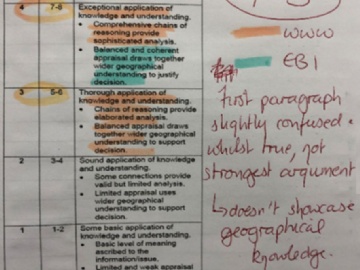 4 7-8 Exceptional application of
knowledge and understanding.
• Comprehensive chains of
reasoning provide
sophisticated analysis.
• Balanced and coherent
appraisal draws together
wider geographical
understanding to justify
decision.
3 5-6 Thorough application of
knowledge and understanding.
• Chains of reasoning provide
elaborated analysis.
• Balanced appraisal draws
together wider geographical
understanding to support
decision.
2 3-4 Sound application of knowledge
and understanding.
• Some connections provide
valid but limited analysis.
• Limited appraisal uses
wider geographical
understanding to support
decision.
1 1-2 Some basic application of
knowledge and understanding.
• Basic level of meaning
ascribed to the
information/issue.
• Limited and weak appraisal
WWW
EBI
First paragraph
slightly confused -
whilst true, not
strongest argument
↳ doesn't showcase
geographical
knowledge.